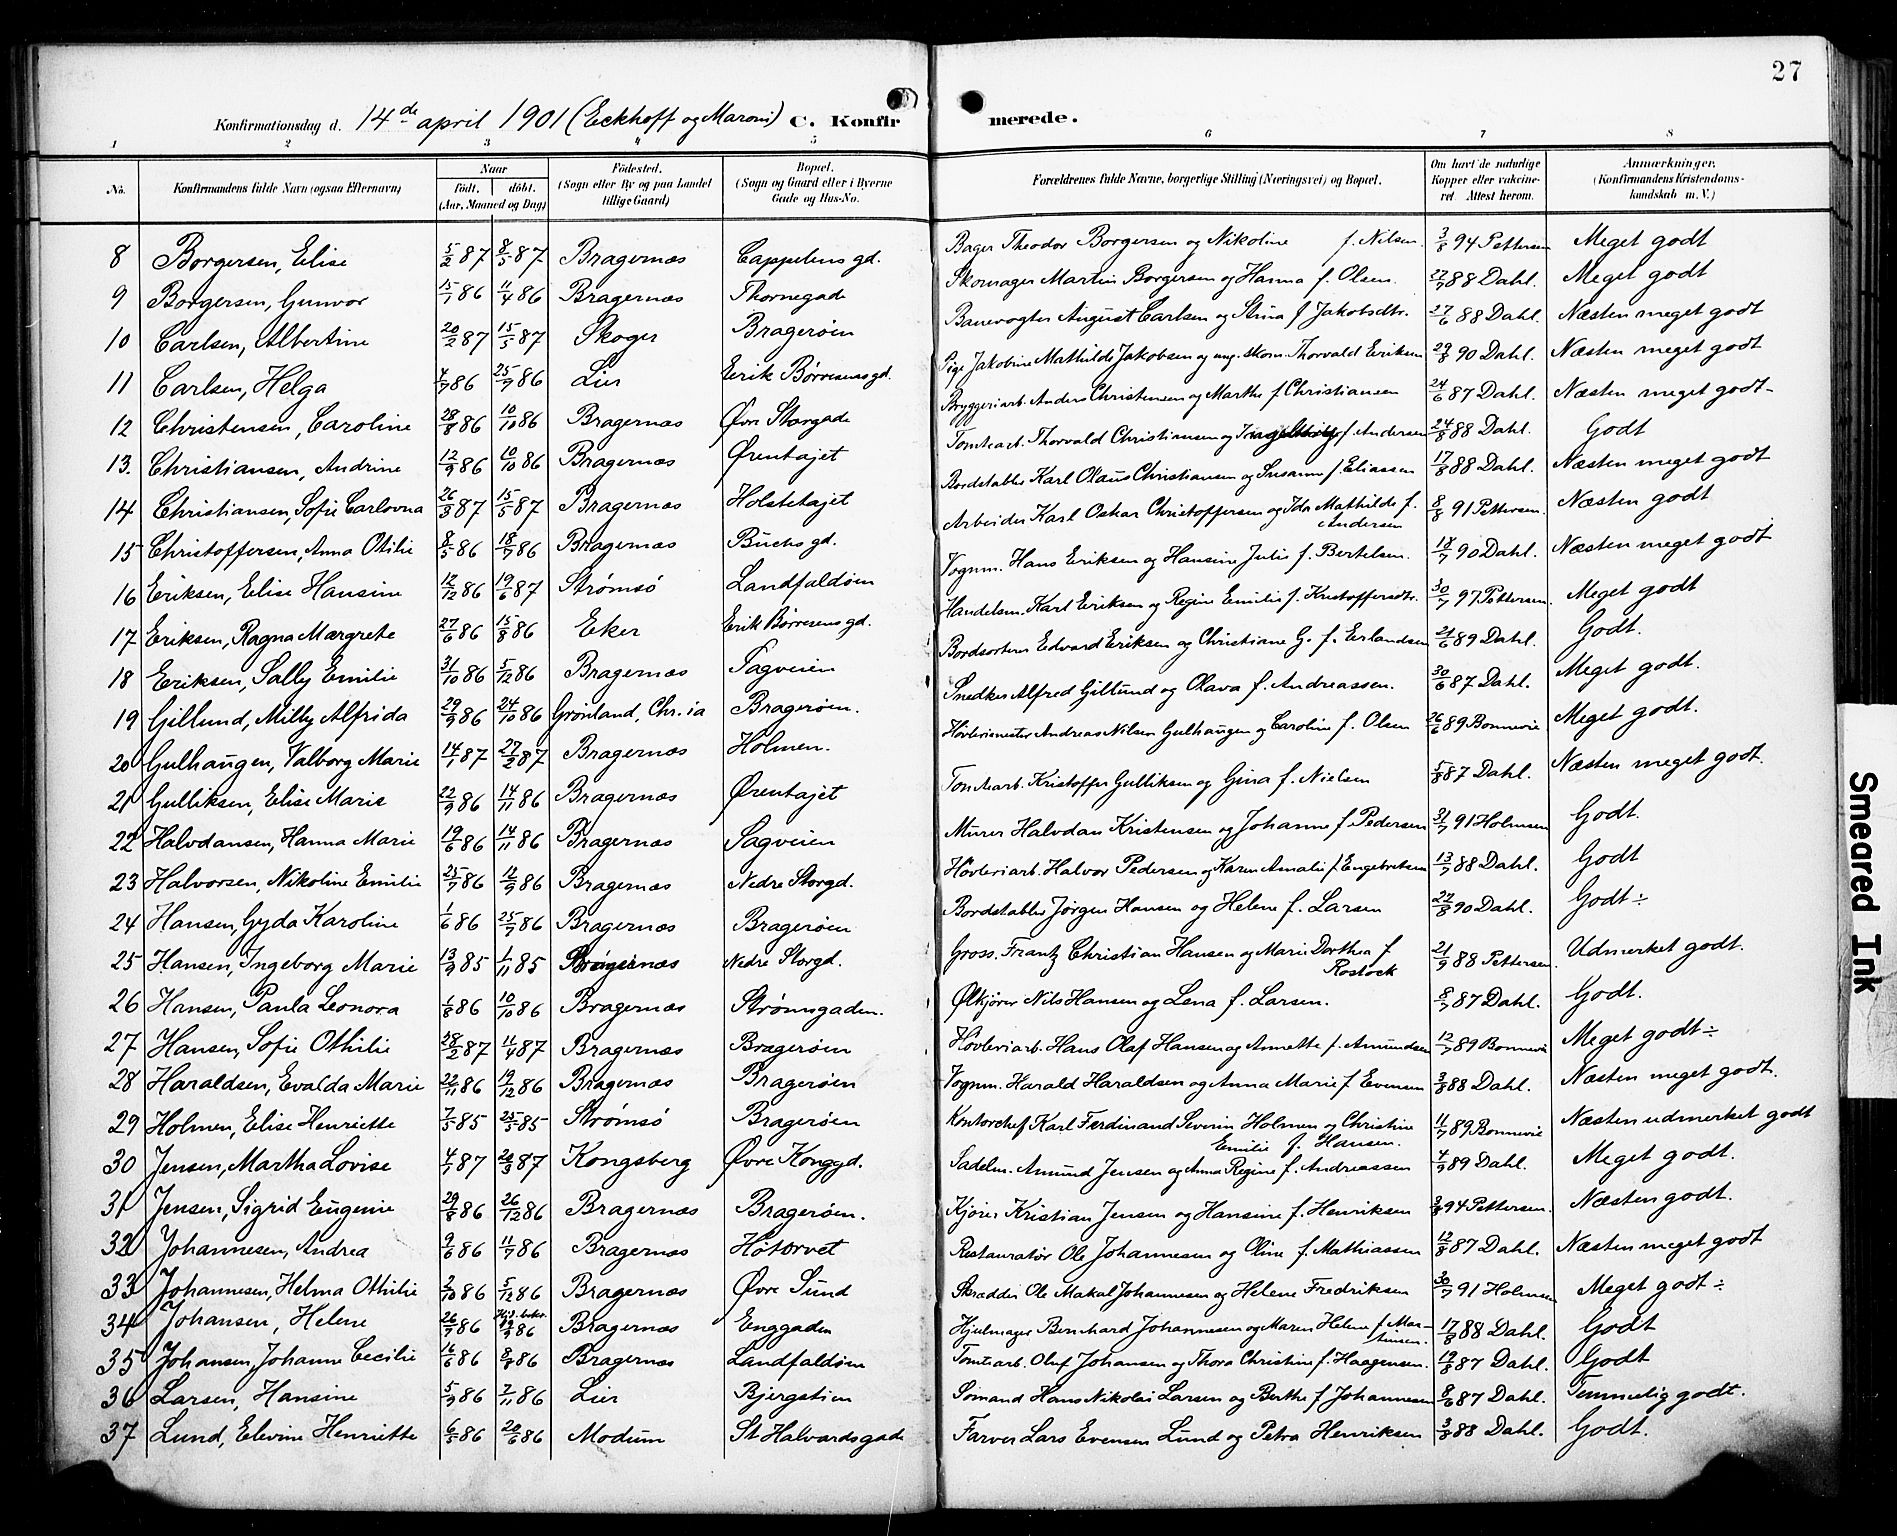 27
Konfirmationsdag d. 14de april 1901 (Eckhoff og Maroni) C. Konfirmerede.
1 2 3 4 5 6 7 8
No. Konfirmandens fulde Navn (ogsaa Efternavn) Naar födt. döbt. (Aar, Maaned og Dag) Födested. (Sogn eller By og paa Landet tillige Gaard) Bopæl. (Sogn og Gaard eller i Byerne Gade og Hus-No. Forældrenes fulde Navne, borgerlige Stilling (Næringsvei) og Bopæl. Om havt de naturlige Kopper eller vakcineret. Attest herom. Anmærkninger. (Konfirmandens Kristendomskundskab m. V.)
8 Borgersen, Elise 5/2 87 8/5 87 Bragernæs Cappelens gd. Bager Theodor Borgersen og Nikoline f. Nilsen. 3/8 94 Pettersen Meget godt
9 Borgersen, Gunvor 15/1 86 11/4 86 Bragernæs Thornegade Skomager Martin Borgersen og Hanna f. Olsen. 22/7 88 Dahl. Meget godt
10 Carlsen, Albertine 20/2 87 15/5 87 Skoger Bragerøen Banevogter August Carlsen og Stina f. Jakobsdtr. 27/6 88 Dahl. Næsten meget godt
11 Carlsen, Helga 4/7 86 25/7 86 Lier Erik Børresens gd. Pige Jakobine Mathilde Jakobsen og ung. skom. Thorvald Eriksen 29/8 90 Dahl. Næsten meget godt
12 Christensen, Caroline 28/8 86 10/10 86 Bragernæs Øvre Storgade Bryggeriarb. Anders Christensen og Marthe f. Christiansen 24/6 87 Dahl. Næsten meget godt-
13. Christiansen, Andrine 12/9 86 10/10 86 Bragernæs Ørentajet Tomtearb. Thorvald Christiansen og f. Andersen 24/8 88 Dahl. Godt
14 Christiansen, Sofie Carlovna 26/3 87 15/5 87 Bragernæs Holstetajet Bordstabler Karl Olaus Christiansen og Susanne f. Eliassen 17/8 88 Dahl. Næsten meget godt
15 Christoffersen, Anna Otilie 8/5 86 18/7 86 Bragernæs Buchs gd. Arbeider Karl Oskar Christoffersen og Ida Mathilde f. Andersen 8/8 91 Pettersen. Næsten godt
16 Eriksen, Elise Hansine 12/12 86 19/6 87 Strømsö Landfaldøen Vognm. Hans Eriksen og Hansine Julie f. Bertelsen. 18/7 90 Dahl. Næsten meget godt
17 Eriksen, Ragna Margrete 27/6 86 15/8 86 Eker Erik Børresens gd. Handelsm. Karl Eriksen og Regine Emilie f. Kristoffersdtr. 30/7 97 Pettersen. Meget godt
18 Eriksen, Sally Emilie 31/10 86 5/12 86 Bragernæs Sagveien Bordsorterer Edvard Eriksen og Christiane G. f. Erlandsen 21/6 89 Dahl. Godt.
19 Gillund, Milly Alfrida 29/9 86 24/10 86 Grønland, Chr.ia Bragerøen. Snedker Alfred Gillund og Olava f. Andreassen. 30/6 87 Dahl. Meget godt.
20 Gulhaugen, Valborg Marie 14/1 87 27/2 87 Bragernæs Holmen. Høvlerimester Andreas Nilsen Gulhaugen og Caroline f. Olsen 26/6 89 Bonnevie Meget godt.
21 Gulliksen, Elise Marie 22/9 86 14/11 86 Bragernæs Ørentajet Tomtearb. Kristoffer Gulliksen og Gina f. Nielsen 5/8 87 Dahl. Næsten meget godt.
22 Halvdansen, Hanna Marie 19/6 86 14/11 86 Bragernæs Sagveien Murer Halvdan Kristensen og Johanne f. Pedersen 31/7 91 Holmsen Godt.
23 Halvorsen, Nikoline Emilie 25/7 86 12/9 86 Bragernæs Nedre Storgd. Høvleriarb. Halvor Pedersen og Karen Amalie f. Engebretsen 13/7 88 Dahl. Godt
24 Hansen, Gyda Karoline 1/6 86 25/7 86 Bragernæs Bragerøen Bordstabler Jørgen Hansen og Helene f. Larsen 22/8 90 Dahl. Godt ÷
25 Hansen, Ingeborg Marie 13/9 85 1/11 85 Bragernæs Nedre Storgd. Gross. Frantz Christian Hansen og Marie Dorthea f. Rostock 21/9 88 Pettersen. Udmerket godt.
26 Hansen, Paula Leonora 1/8 86 10/10 86 Bragernæs Strømsgaden. Ølkjører Nils Hansen og Lena f. Larsen. 8/7 87 Dahl. Godt.
27 Hansen, Sofie Othilie 28/2 87 11/4 87 Bragernæs Bragerøen Høvleriarb. Hans Olaf Hansen og Annette f. Amundsen 12/7 89 Bonnevie Meget godt ÷
28 Haraldsen, Evalda Marie 22/11 86 19/12 86 Bragernæs Bragerøen Vognm. Harald Haraldsen og Anna Marie f. Evensen 3/8 88 Dahl. Næsten meget godt.
29 Holmen, Elise Henriette 7/5 85 25/5 85 Strømsö Bragerøen Kontorchef Karl Ferdinand Severin Holmen og Christine Emilie f. Hansen. 11/7 89 Bonnevie Næsten udmerket godt
30 Jensen, Martha Lovise 4/1 87 20/3 87 Kongsberg Øvre Konggd. Sadelm. Amund Jensen og Anna Regine f. Andreassen 4/9 89 Dahl. Meget godt.
31 Jensen, Sigrid Eugenie 29/8 86 26/12 86 Bragernæs Bragerøen. Kjører Kristian Jensen og Hansine f. Henriksen 3/8 94 Pettersen. Næsten godt.
32 Johannesen, Andrea 9/6 86 11/7 86 Bragernæs Høtorvet Restauratør Ole Johannesen og Oline f. Mathiassen 12/8 87 Dahl. Næsten meget godt
33 Johannesen, Helma Othilie 2/10 86 5/12 86 Bragernæs Øvre Sund Skrædder Ole Makal Johannesen og Helene Fredriksen 30/7 91 Holmsen Meget godt ÷
34 Johansen, Helene 26/7 86 19/9 86 Bragernæs Enggaden Hjulmager Bernhard Johannesen og Maren Helene f. Martinsen. 17/8 88 Dahl. Godt
35 Johansen, Johanne Cecilie 16/6 86 8/8 86 Bragernæs Landfaldøen Tomtearb. Oluf Johansen og Thora Christine f. Haagensen. 19/8 87 Dahl. Godt
36 Larsen, Hansine 5/9 86 7/11 86 Lier Bjergstien Sømand Hans Nikolai Larsen og Berthe f. Johannesen 8/6 87 Dahl. Temmelig godt.
37 Lund, Elevine Henriette 6/5 86 20/6 86 Modum St Halvards gade Farver Lars Evensen Lund og Petra Henriksen 3/8 88 Dahl. Godt.
Smeared Ink